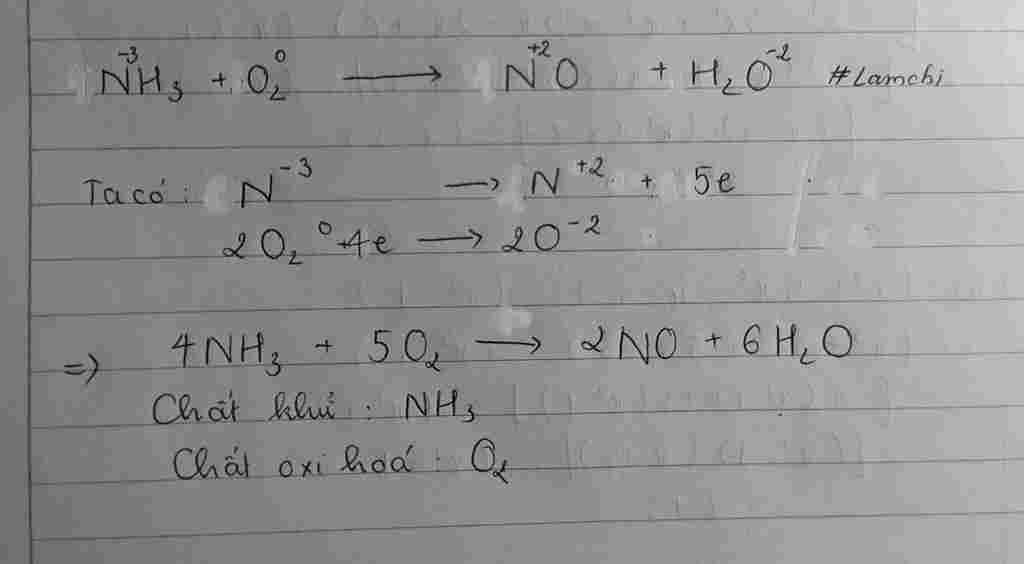 N⁻³H₃ + O₂⁰ ⟶ N⁺²O + H₂O⁻² #Lamchi
Ta có: N⁻³ ⟶ N⁺² + 5e
2O₂⁰ +4e ⟶ 2O⁻²
=> 4NH₃ + 5O₂ ⟶ 2NO + 6H₂O
Chất khử: NH₃
Chất oxi hoá: O₂